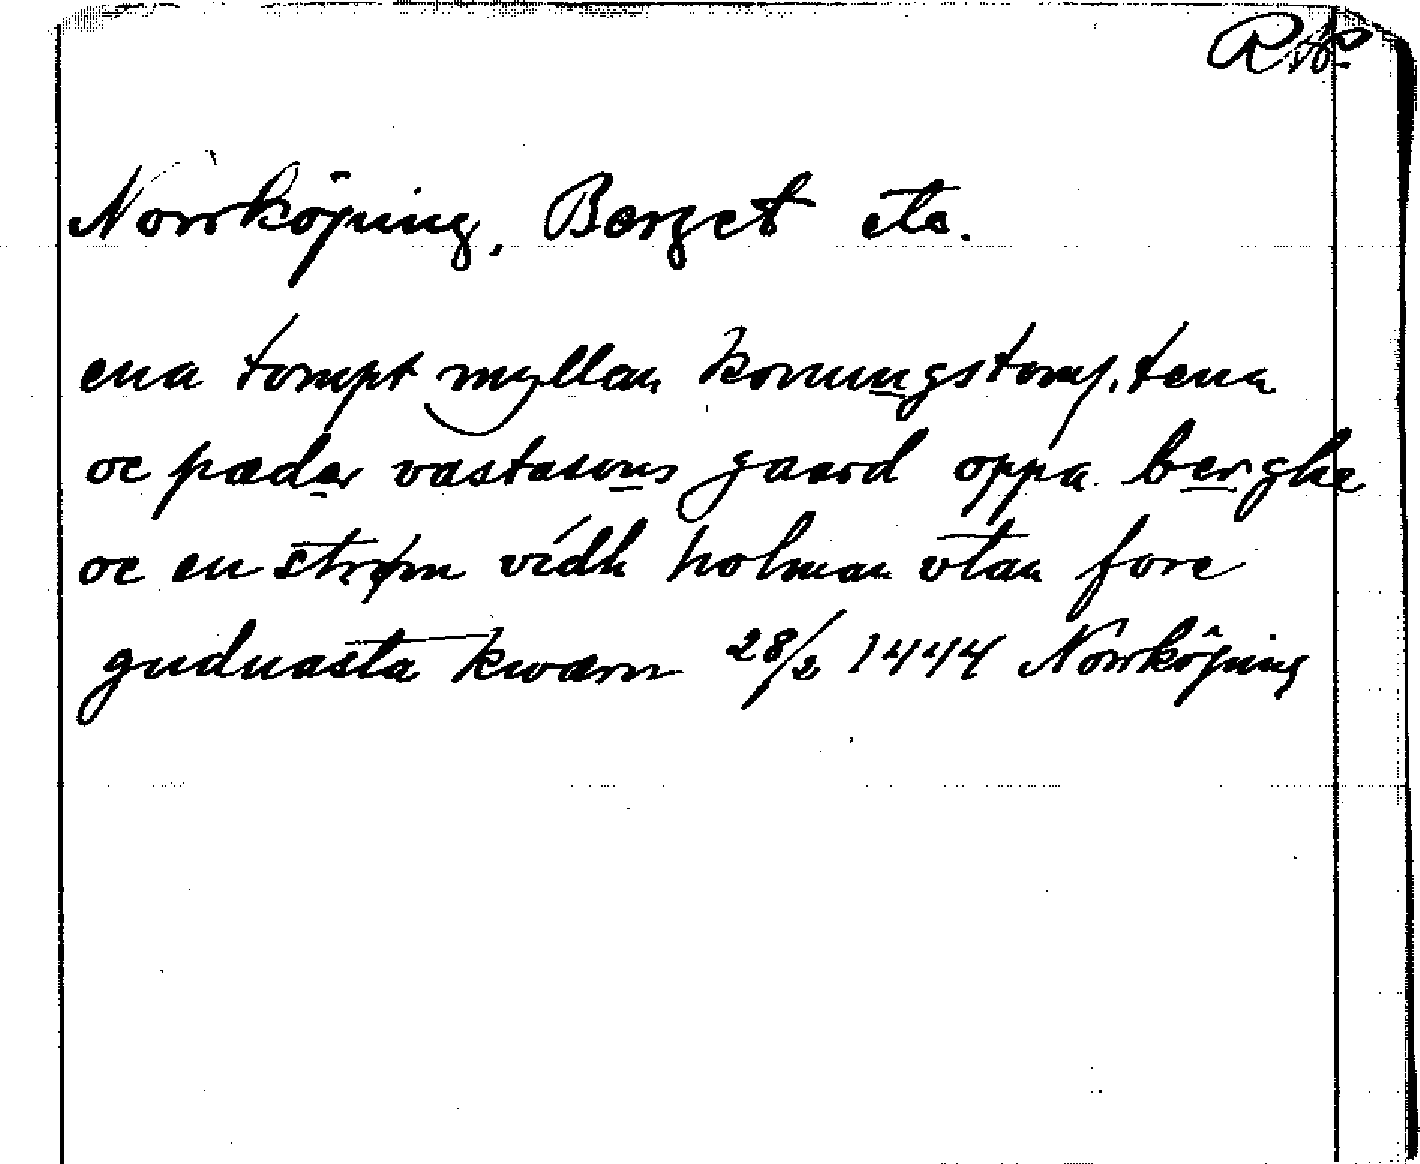 RAp
Norrköping, Berget etc.
ena tompt myllan konungstomptena
oc pædar vastasons gaard oppa berghe
oc en strøm vidh holman vtan fore
guduasta kwærn 28/2 1444 Norrköping